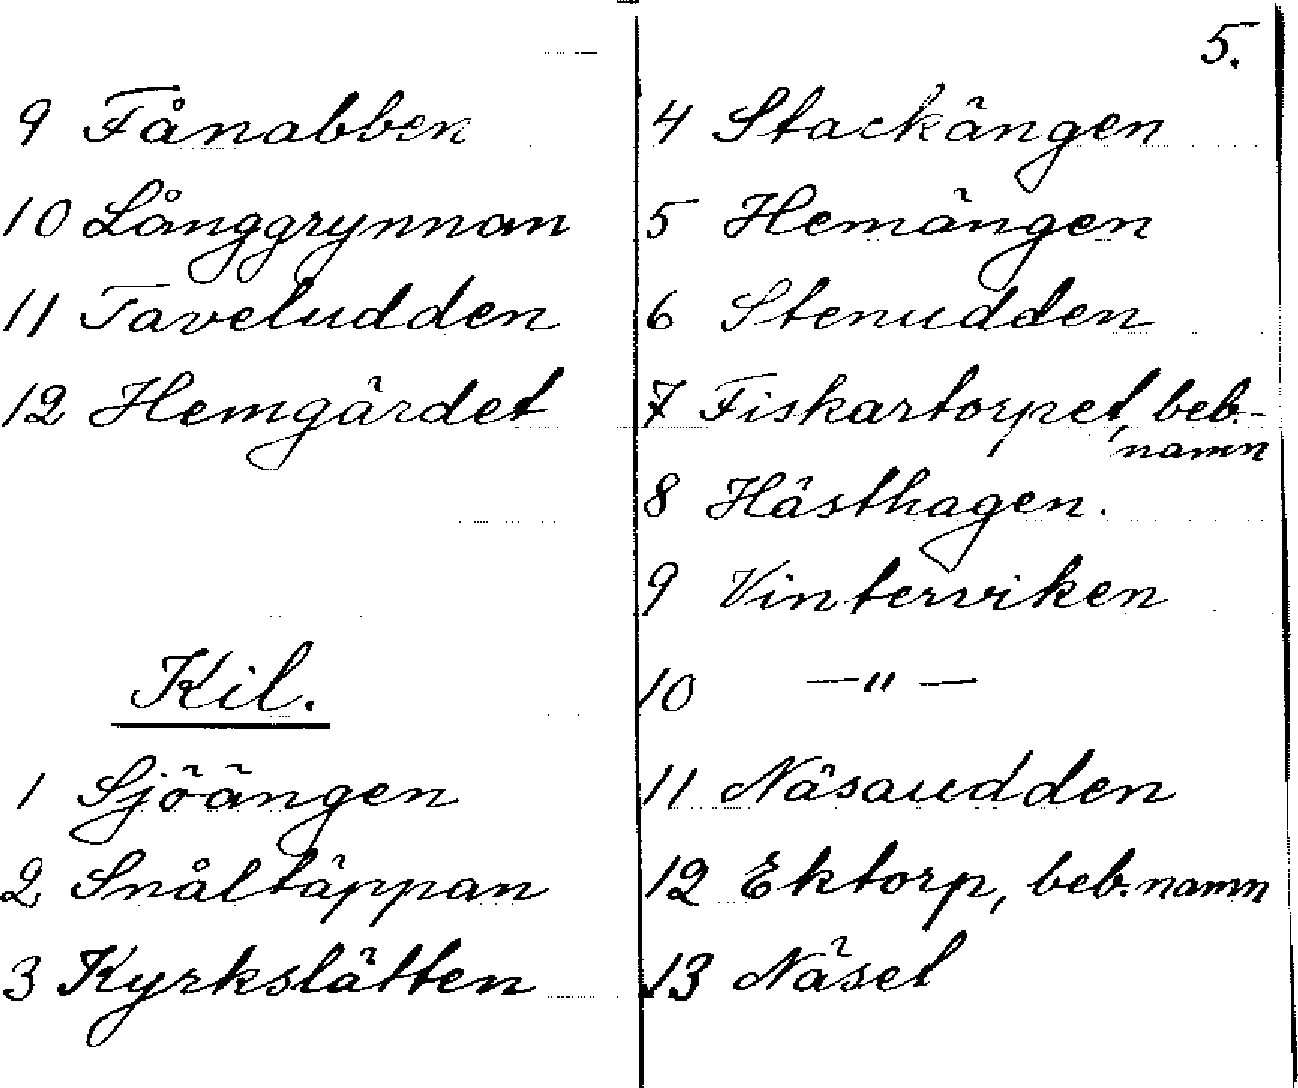 5.
9 Fånabben
10 Långgrynnan
11 Taveludden
12 Hemgärdet
Kil.
1 Sjöängen
2 Snåltäppan
3 Kyrkslätten
4 Stackängen
5 Hemängen
6 Stenudden
7 Fiskartorpet, beb.-
namn
8 Hästhagen.
9 Vinterviken
10 —"—
11 Näsaudden
12 Ektorp, beb. namn
13 Näset